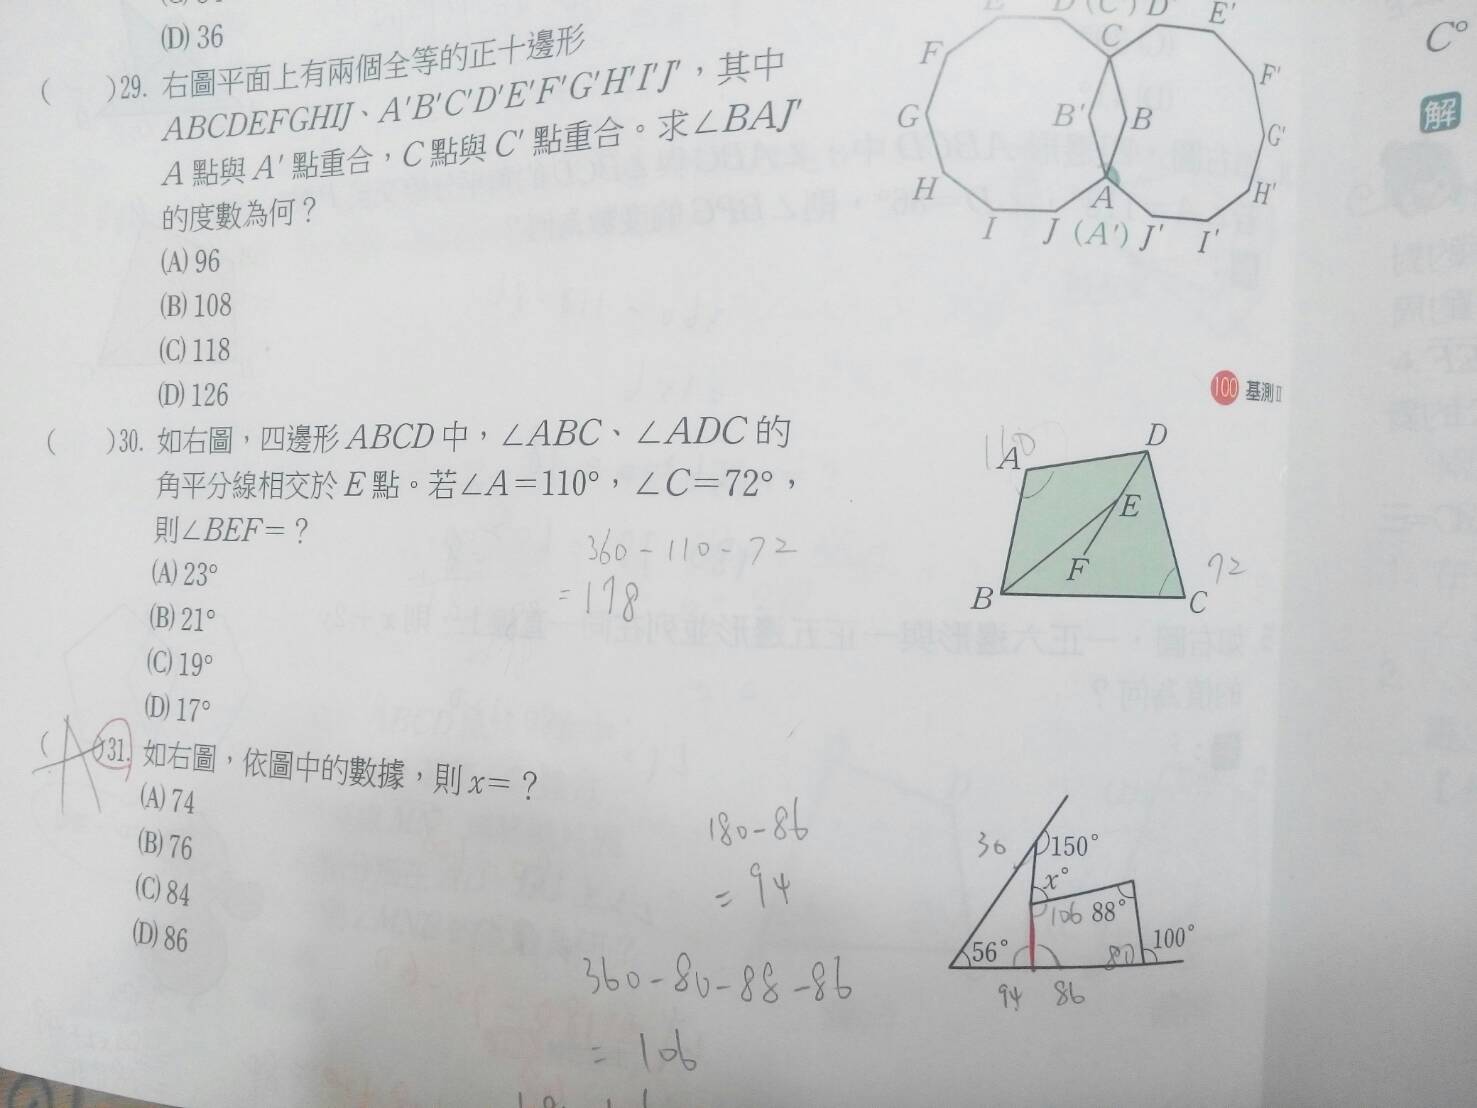 (D) 36
( )29. 右圖平面上有兩個全等的正十邊形
ABCDEFGHIJ、A'B'C'D'E'F'G'H'I'J'，其中
A 點與 A' 點重合，C 點與 C' 點重合。求∠BAJ'
的度數為何？
(A) 96
(B) 108
(C) 118
(D) 126
E D (C') D' E'
F C F'
G B' B G'
H A H'
I J (A') J' I'
C°
解
100 基測Ⅱ
( )30. 如右圖，四邊形 ABCD 中，∠ABC、∠ADC 的
角平分線相交於 E 點。若∠A＝110°，∠C＝72°，
則∠BEF＝？
(A) 23°
(B) 21°
(C) 19°
(D) 17°
360－110－72
＝178
110
A D
E
F 72
B C
( A )31. 如右圖，依圖中的數據，則 x＝？
(A) 74
(B) 76
(C) 84
(D) 86
180－86
＝94
360－80－88－86
＝106
30 150°
x°
106 88°
56° 80 100°
94 86